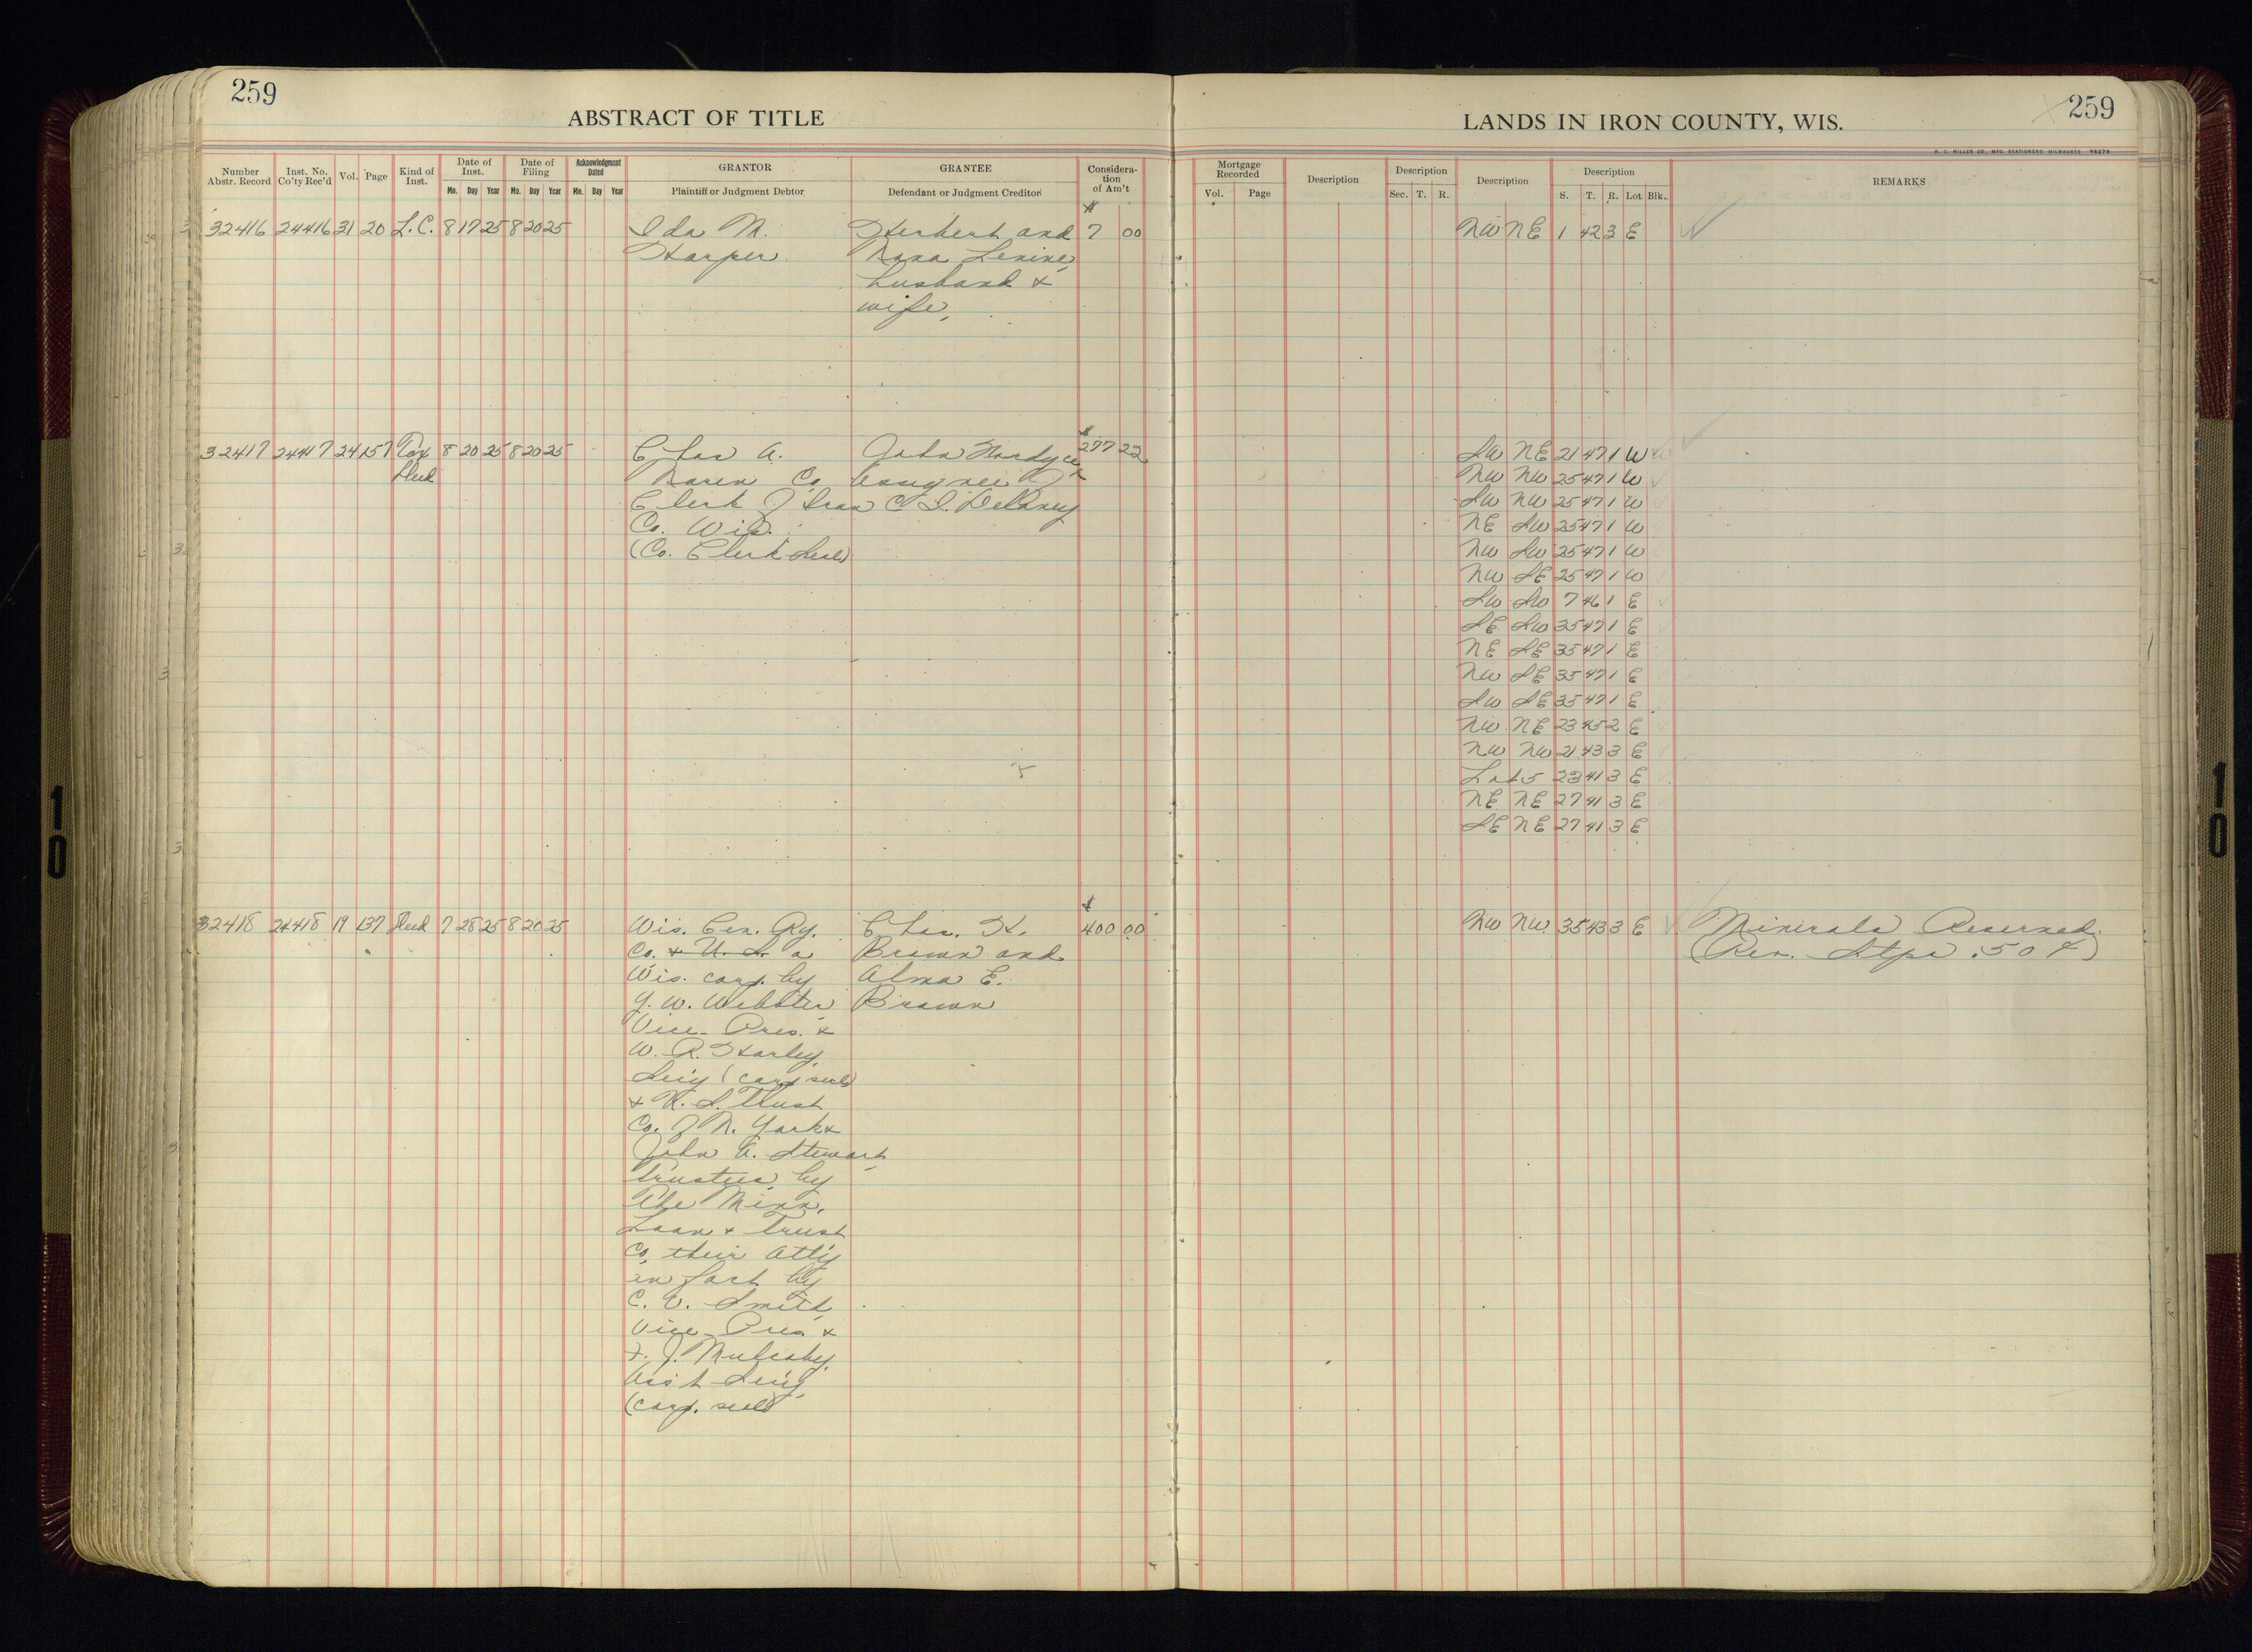 259
ABSTRACT OF TITLE
Number Abstr. Record
Inst. No. Co'ty Rec'd
Vol.
Page
Kind of Inst.
Date of Inst.
Mo. Day Year
Date of Filing
Mo. Day Year
Acknowledgment Dated
Mo. Day Year
GRANTOR
Plaintiff or Judgment Debtor
GRANTEE
Defendant or Judgment Creditor
Considera-
tion
of Am't
32416 24416 31 20 L.C. 8 17 25 8 20 25 Ida M. Herbert and $7 00
Harper
husband &
wife,
32417 24417 24 157 Tax 8 20 25 8 20 25 Chas A. John $277 22
Deed
Co. Assignee of
Clerk of Iron C I. Delaney
Co. Wis.
(Co. Clerk Seal)
32418 24418 19 137 Deed 7 28 25 8 20 25 Wis. Cen. Ry. Chas. H. $400 00
Co. & U. S. a Brown and
Wis. corp. by Alma E.
G. W. Webster Brown
Vice-Pres. &
W. R. Harley,
Sec'y (corp seal)
& U. S. Trust
Co. of N. York &
John A. Stewart,
Trustees, by
The Minn.
Loan & Trust
Co. their Att'y
in fact by
C. V. Smith,
Vice-Pres &
F. J. Mulcahy,
Ass't Sec'y
(corp. seal)
259
LANDS IN IRON COUNTY, WIS.
H. C. MILLER CO., MFG. STATIONERS, MILWAUKEE 76279
Mortgage Recorded
Vol. Page
Description
Description
Sec. T. R.
Description
Description
S. T. R. Lot Blk.
REMARKS
NW NE 1 42 3 E
SW NE 21 47 1 W
NW NW 25 47 1 W
SW NW 25 47 1 W
NE SW 25 47 1 W
NW SW 25 47 1 W
NW SE 25 47 1 W
SW SW 7 46 1 E
SE SW 35 47 1 E
NE SE 35 47 1 E
NW SE 35 47 1 E
SW SE 35 47 1 E
NW NE 23 45 2 E
NW NW 21 43 3 E
Lot 5 23 41 3 E
NE NE 27 41 3 E
SE NE 27 41 3 E
NW NW 35 43 3 E Minerals Reserved.
(Rev. Stps .50¢)
10
10